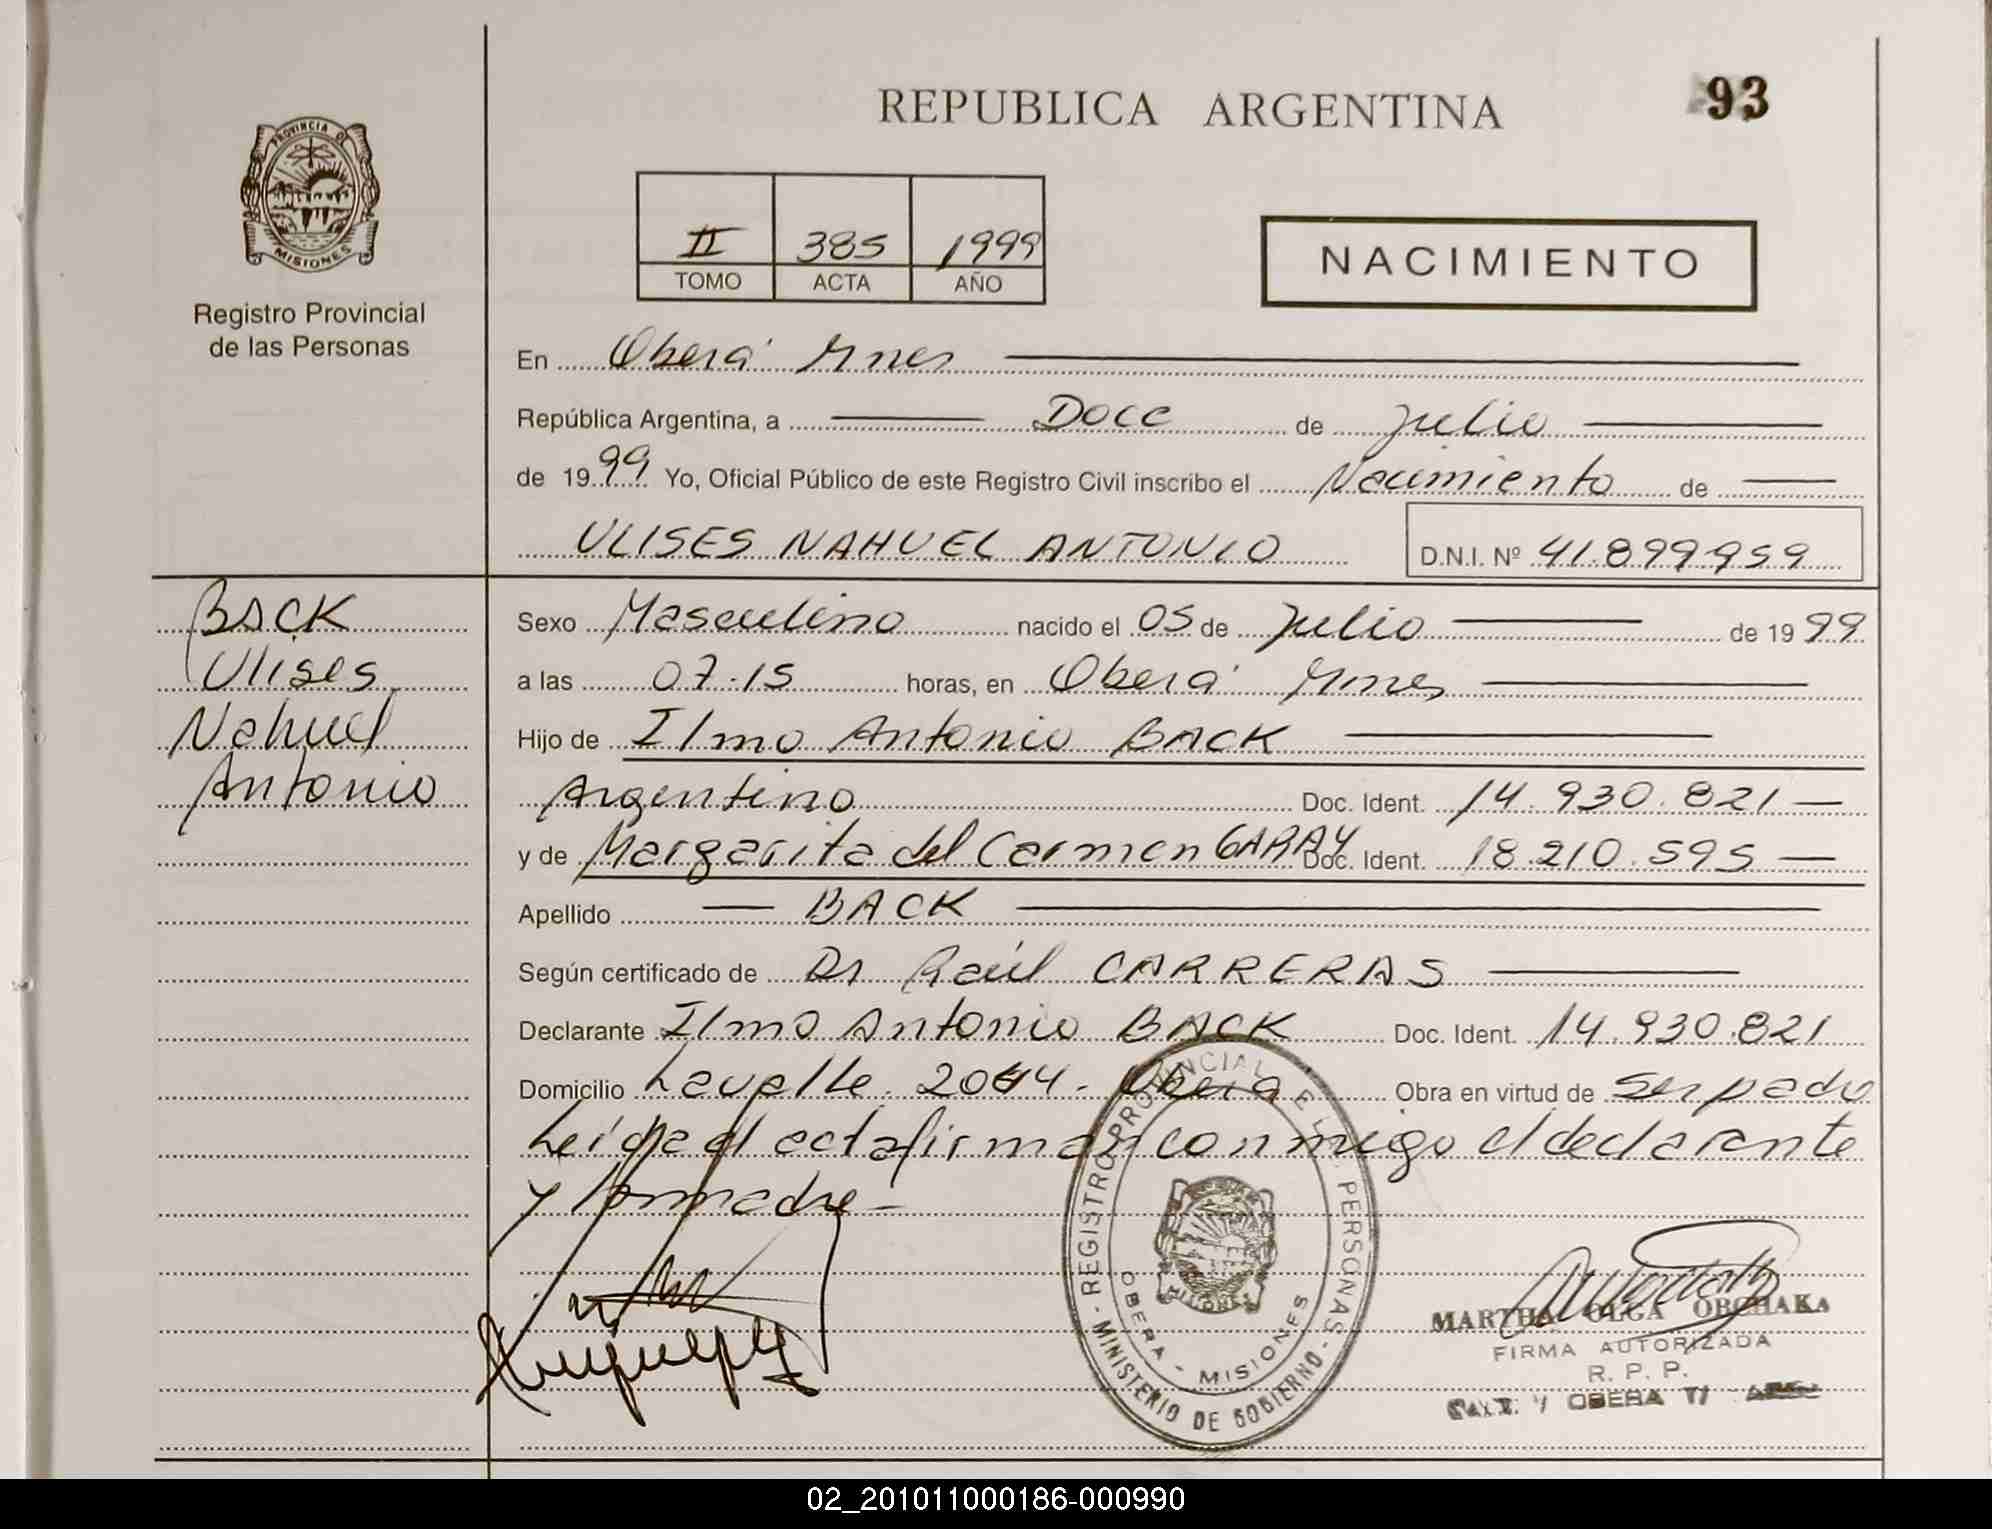 REPUBLICA ARGENTINA
93
PROVINCIA DE
MISIONES
Registro Provincial
de las Personas
II 385 1999
TOMO ACTA AÑO
NACIMIENTO
En Oberá Mnes
República Argentina, a Doce de Julio
de 1999 Yo, Oficial Público de este Registro Civil inscribo el Nacimiento de
ULISES NAHUEL ANTONIO D.N.I. Nº 41.899.959
Back
Ulises
Nahuel
Antonio
Sexo Masculino nacido el 05 de Julio de 1999
a las 07.15 horas, en Oberá Mnes
Hijo de Ilmo Antonio BACK
Argentino Doc. Ident. 14.930.821
y de Margarita del Carmen GARAY Doc. Ident. 18.210.595
Apellido BACK
Según certificado de Dr Raúl CARRERAS
Declarante Ilmo Antonio BACK Doc. Ident. 14.930.821
Domicilio Lavalle. 2044. Oberá Obra en virtud de ser padre
Leída el acta firman conmigo el declarante
y la madre
REGISTRO PROVINCIAL DE L. PERSONAS - MINISTERIO DE GOBIERNO -
OBERA - MISIONES
MISIONES
MARTHA OLGA OBCHAKA
FIRMA AUTORIZADA
R. P. P.
OBERA
02_201011000186-000990